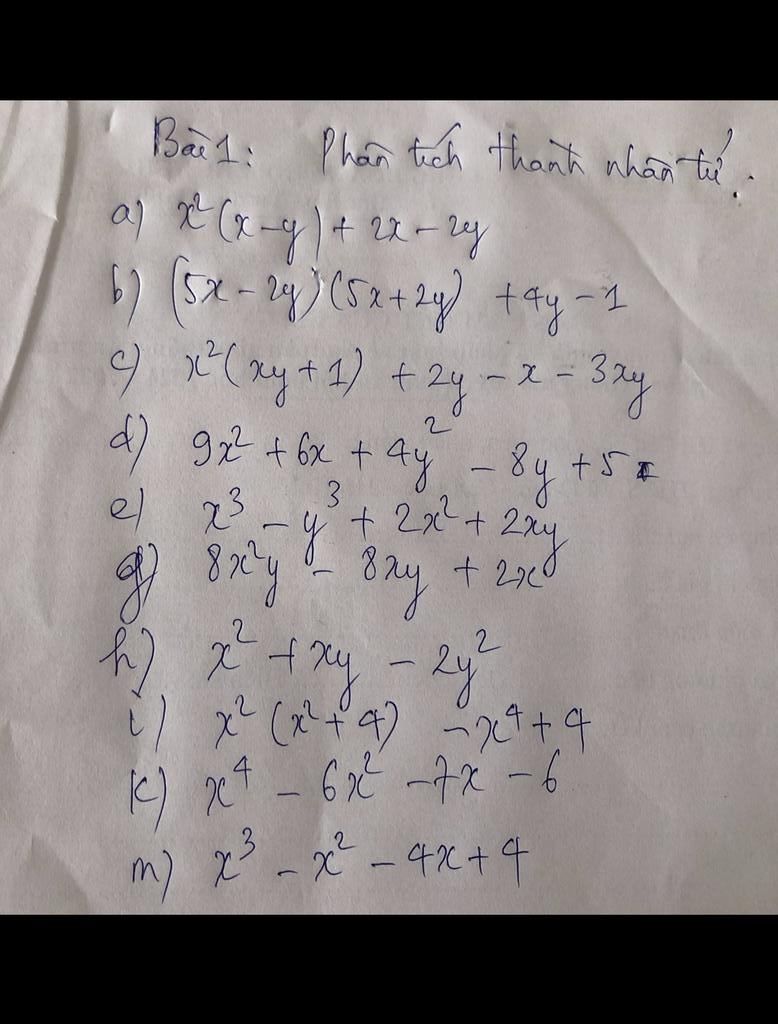 Bài 1: Phân tích thành nhân tử.
a) x²(x-y) + 2x - 2y
b) (5x - 2y)(5x + 2y) + 4y - 1
c) x²(xy + 1) + 2y - x - 3xy
d) 9x² + 6x + 4y² - 8y + 5
e) x³ - y³ + 2x² + 2xy
g) 8x²y - 8xy + 2x
h) x² + xy - 2y²
i) x²(x² + 4) - x⁴ + 4
k) x⁴ - 6x² - 7x - 6
m) x³ - x² - 4x + 4